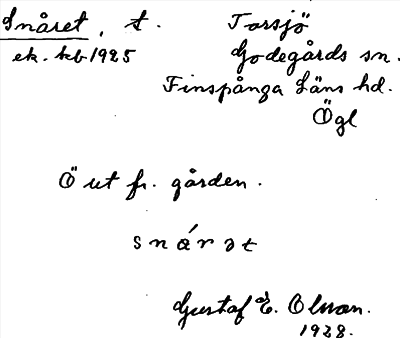 Snåret, t. Torsjö
ek. kb 1925 Godegårds sn.
Finspånga Läns hd.
Ögl
Ö ut fr. gården.
snárət
Gustaf E. Olsson.
1928.